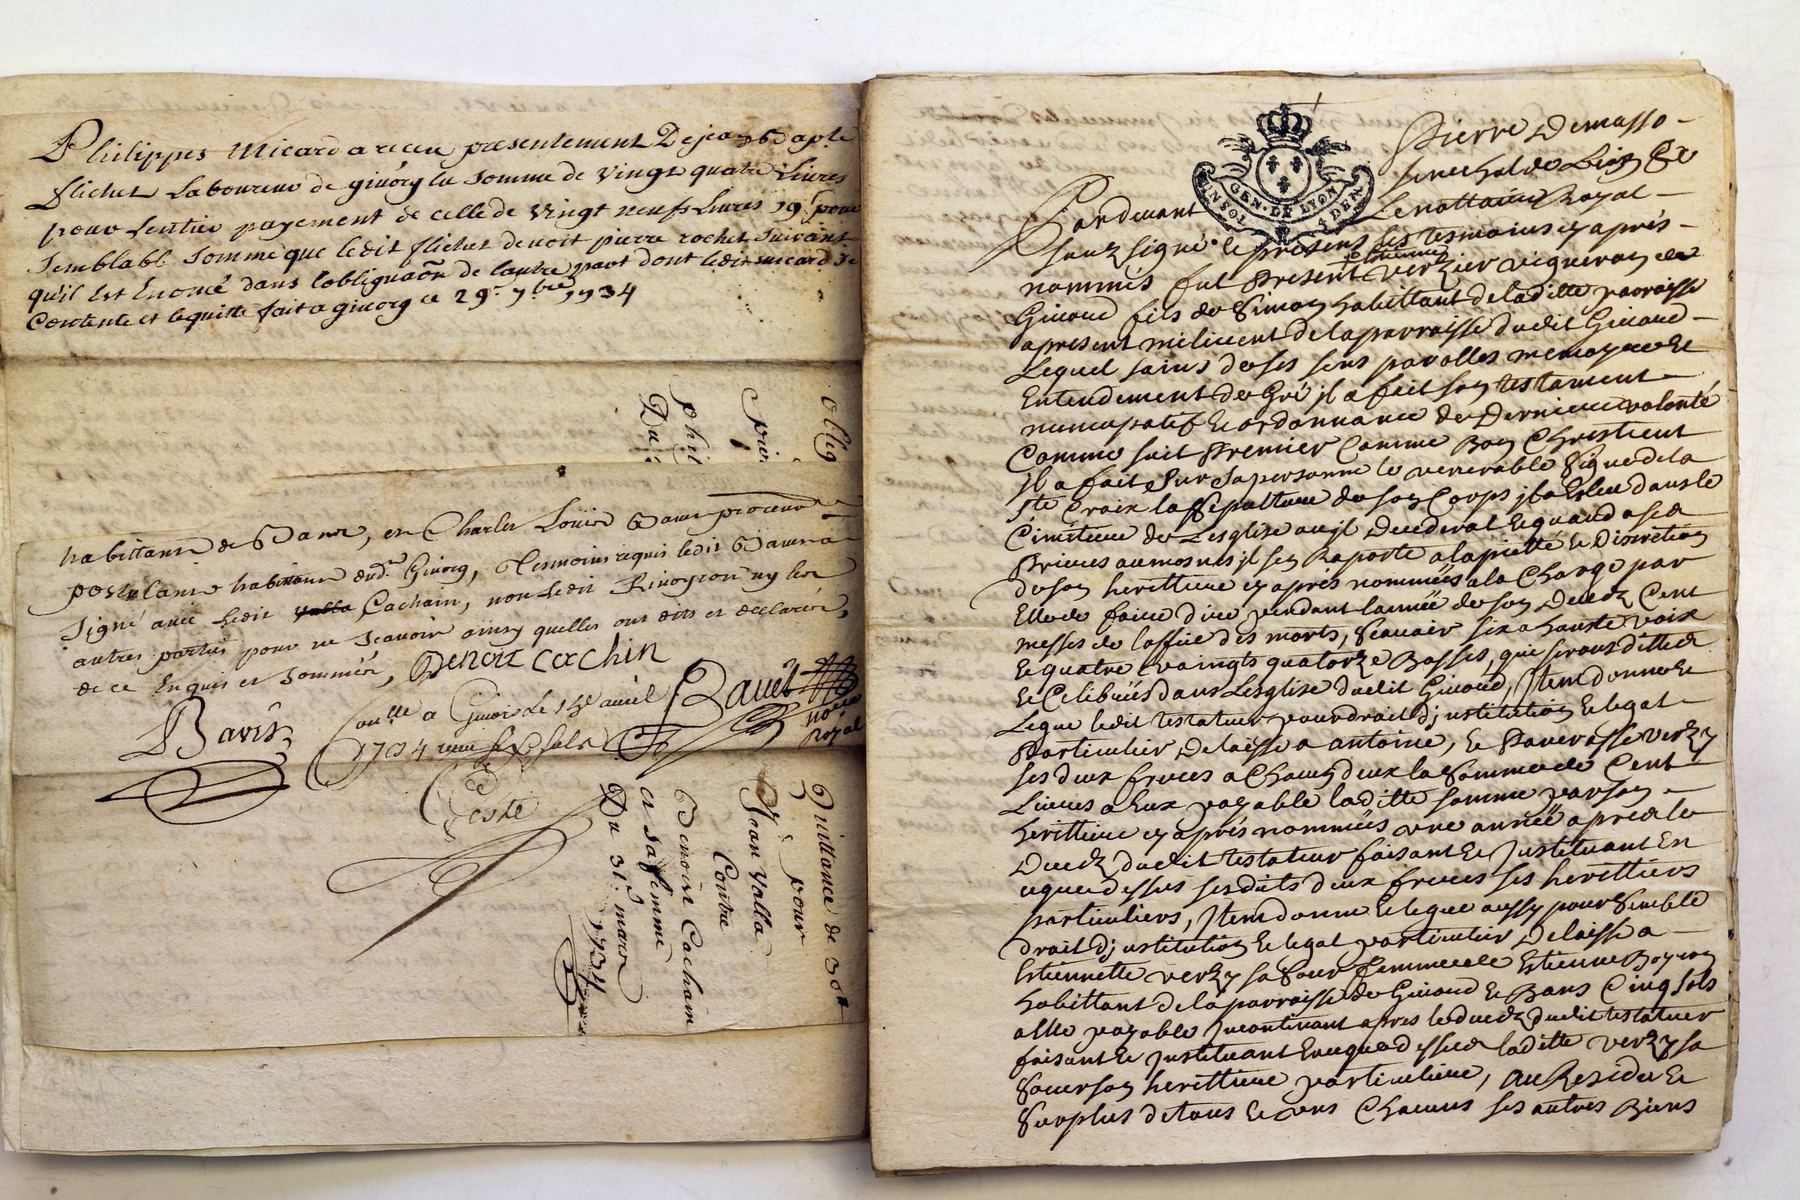 Philippes Micard a receu presentement De jean
flichet Laboureur de givorg la somme de vingt quatre Livres
pour Lentier payement de celle de vingt neufs Livres 19s pour
semblable somme que ledit flichet devoit pierre rochet suivant
qu'il Est Enoncé dans l'obligaôn de lautre part dont ledit micard se
Contente et le quitte fait a givorg ce 29e 7bre 1734
ollig
pier
phil
Du
habittans de et Charles Louis
postulant habittant dud. Givorg, Tesmoins requis ledit
signé avec Ledit Cachain, non Ledit ny les
autres parties pour ne scavoir ainsy quelles ont dits et declarés,
de ce Enquis et sommés, Benoit cochin
Bavet
noere
royal
Conllé a Givors Le avril
1734 receu sols
Coste
Quittance de 30#
pour
Jean Valla
Contre
Benoist Cachain
et sa femme
Du 31e mars
1734
GEN · DE LYON
UNSOL 4 DEN
Pierre Demasso
senechal de Lion &
Pardevant Le nottaire Royal
souzsigné et presens les tesmoins cy après
nommés fut Present estienne verzier vigneron de
Givord fils de Simon habittant de laditte parroisse
apresent milicient de la parroisse dudit Givord
Lequel sains de ses sens parolles memoyre et
Entendement de Gré jl a fait son testament
nuncupatif et ordonnance de Derniere volonté
Comme suit Premier Comme Bon Chrestient
jl a fait sur sa personne le venerable signe de la
ste Croix la sepulture de son Corps jl a Esleu dans le
Cimetiere de Lesglise ou jl Decedera et quand a ses
Prieres aumosnes jl sen Raporte a la pietté et Discretion
de son heritiere cy après nommées a la Charge par
Elle de faire dire pendant lannée de son Decedz Cent
messes de loffice des morts, scavoir six a haute voix
et quatre vaingts quatorze Basses, que seronts dittes
et Celebrées dans Lesglise dudit Givord, Jtem donne et
Legue ledit testateur pour droit d'justitution et legat
Particulier Delaisse a antoine, et verzy
ses deux freres a Chacun deux la somme de Cent
Livres a Eux payable laditte somme par son
heritiere cy après nommées une année apres le
Decedz dudit testateur faisant et Justituant En
ce que dessus sesdits deux freres ses heritiers
particuliers, Jtem donne et legue aussy pour semble
droit d'justitution et legat particulier Delaisse a
Estiennette verzy sa sœur femme de Estienne Boyron
habittant de la parroisse de Givord et Bans Cinq sols
a Elle payable Jncontinant apres le decedz dudit testateur
faisant et Justituant En ce que dessus laditte verzy sa
sœur son heritiere particuliere, au Residu et
surplus de tous et uns Chacuns ses autres Biens